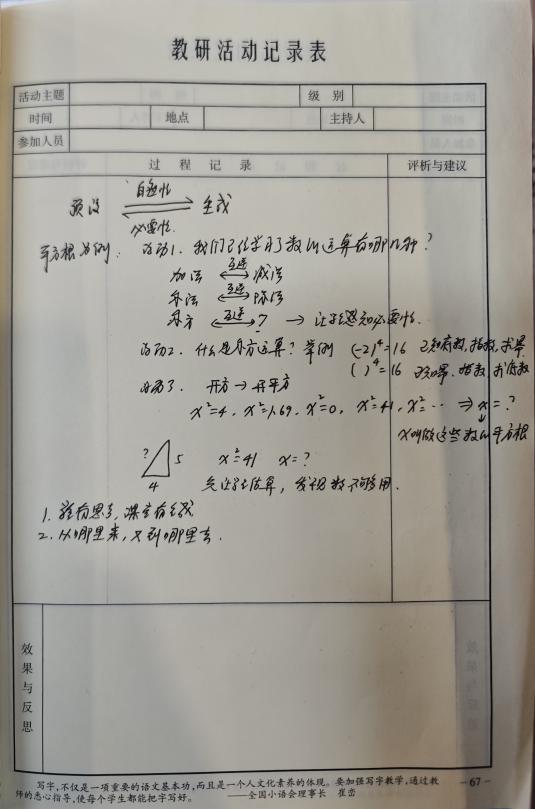 教研活动记录表
活动主题 级 别
时间 地点 主持人
参加人员
过 程 记 录 评析与建议
自然性
预设 生成
必要性
平方根为例. 活动1. 我们已经学习了数的运算有哪几种?
加法 互逆 减法
乘法 互逆 除法
乘方 互逆 ? → 让学生感知必要性.
活动2. 什么是乘方运算? 举例 (-2)⁴=16 已知底数,指数,求幂
( )⁴=16 已知幂.指数,求底数
活动3. 开方→开平方
x²=4, x²=1.69, x²=0, x²=41, x²=… ⇒ x=?
x叫做这些数的平方根
? 5 x²=41 x=?
4
先让学生估算, 发现数不够用.
1. 课有思考, 课堂有生成
2. 从哪里来, 又到哪里去.
效果与反思
写字,不仅是一项重要的语文基本功,而且是一个人文化素养的体现。要加强写字教学,通过教
师的悉心指导,使每个学生都能把字写好。 ——全国小语会理事长 崔峦
-67-